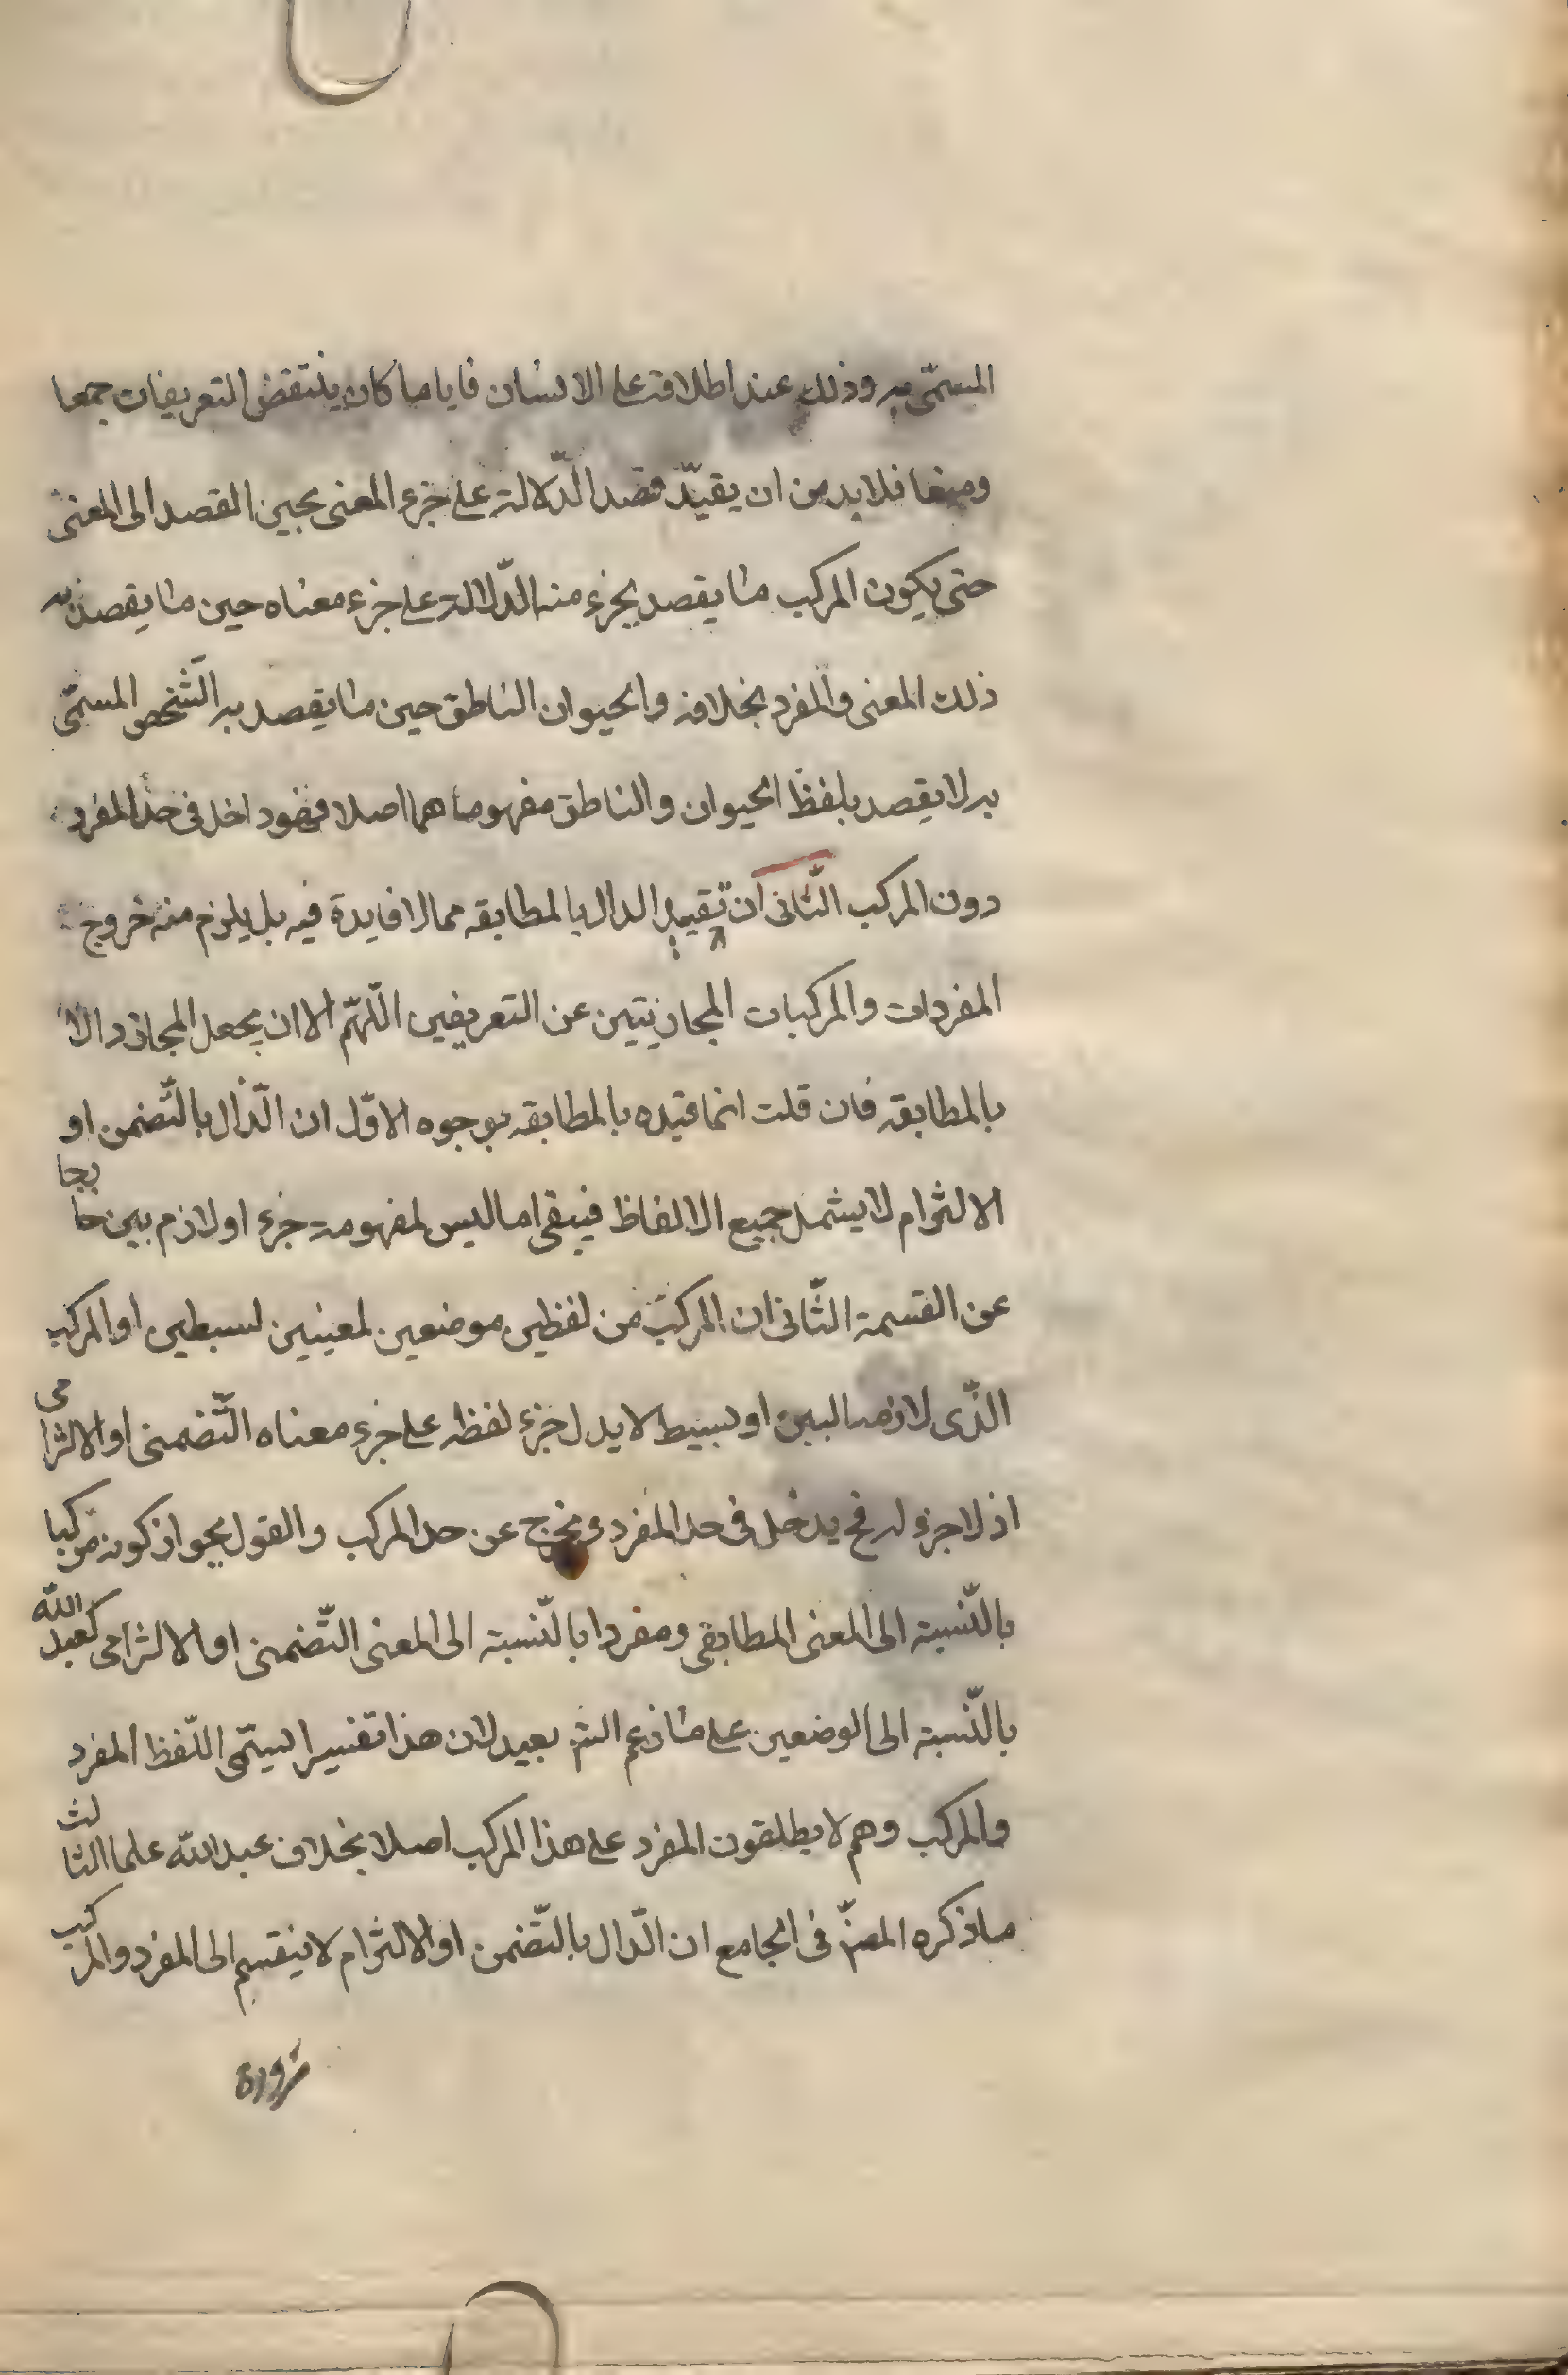 المسمّى به وذلك عند اطلاقه على الانسان فاياما كان ينتقض التعريفات جمعا
ومنعا فلابد من ان يقيّد قصد الدّلالة على جزء المعنى بحين القصد الى المعنى
حتى يكون المركب ما يقصد بجزء منه الدّلالة على جزء معناه حين ما يقصد به
ذلك المعنى والمفرد بخلافه والحيوان الناطق حين ما يقصد به الشّخص المسمّى
به لا يقصد بلفظ الحيوان والناطق مفهوما هما اصلا فهو داخل فى حد المفرد
دون المركب الثّانى ان تقييد الدال بالمطابقه مما لا فايدة فيه بل يلزم منه خروج
المفردات والمركبات المجازيتين عن التعريفين اللّهمّ الا ان يجعل المجاز دالا
بالمطابقه فان قلت انما قيّده بالمطابقه بوجوه الاوّل ان الدّال بالتّضمن او
الالتزام لا يشمل جميع الالفاظ فيبقى اما ليس لمفهومه جزء او لازم بين خارجا
عن القسمة الثّانى ان المركّب من لفظين موضعين لمعنيين بسيطين او المركب
الذّى لازمه البين او بسيط لا يدل جزء لفظه على جزء معناه التّضمنى او الالتزامى
اذ لا جزء له فح يدخل فى حد المفرد ويخرج عن حد المركب والقول بجواز كونه مركبا
بالنّسبة الى المعنى المطابقى ومفردا بالنّسبة الى المعنى التّضمنى او الالتزامى كعبد الله
بالنّسبة الى الوضعين على ما زعم الش بعيد لان هذا تفسير ليسمّى اللّفظ المفرد
والمركب وهم لا يطلقون المفرد على هذا المركب اصلا بخلاف عبد الله علما الثالث
ما ذكره المصنّ فى الجامع ان الدّال بالتّضمن او الالتزام لا ينقسم الى المفرد والمركب
ضرورة